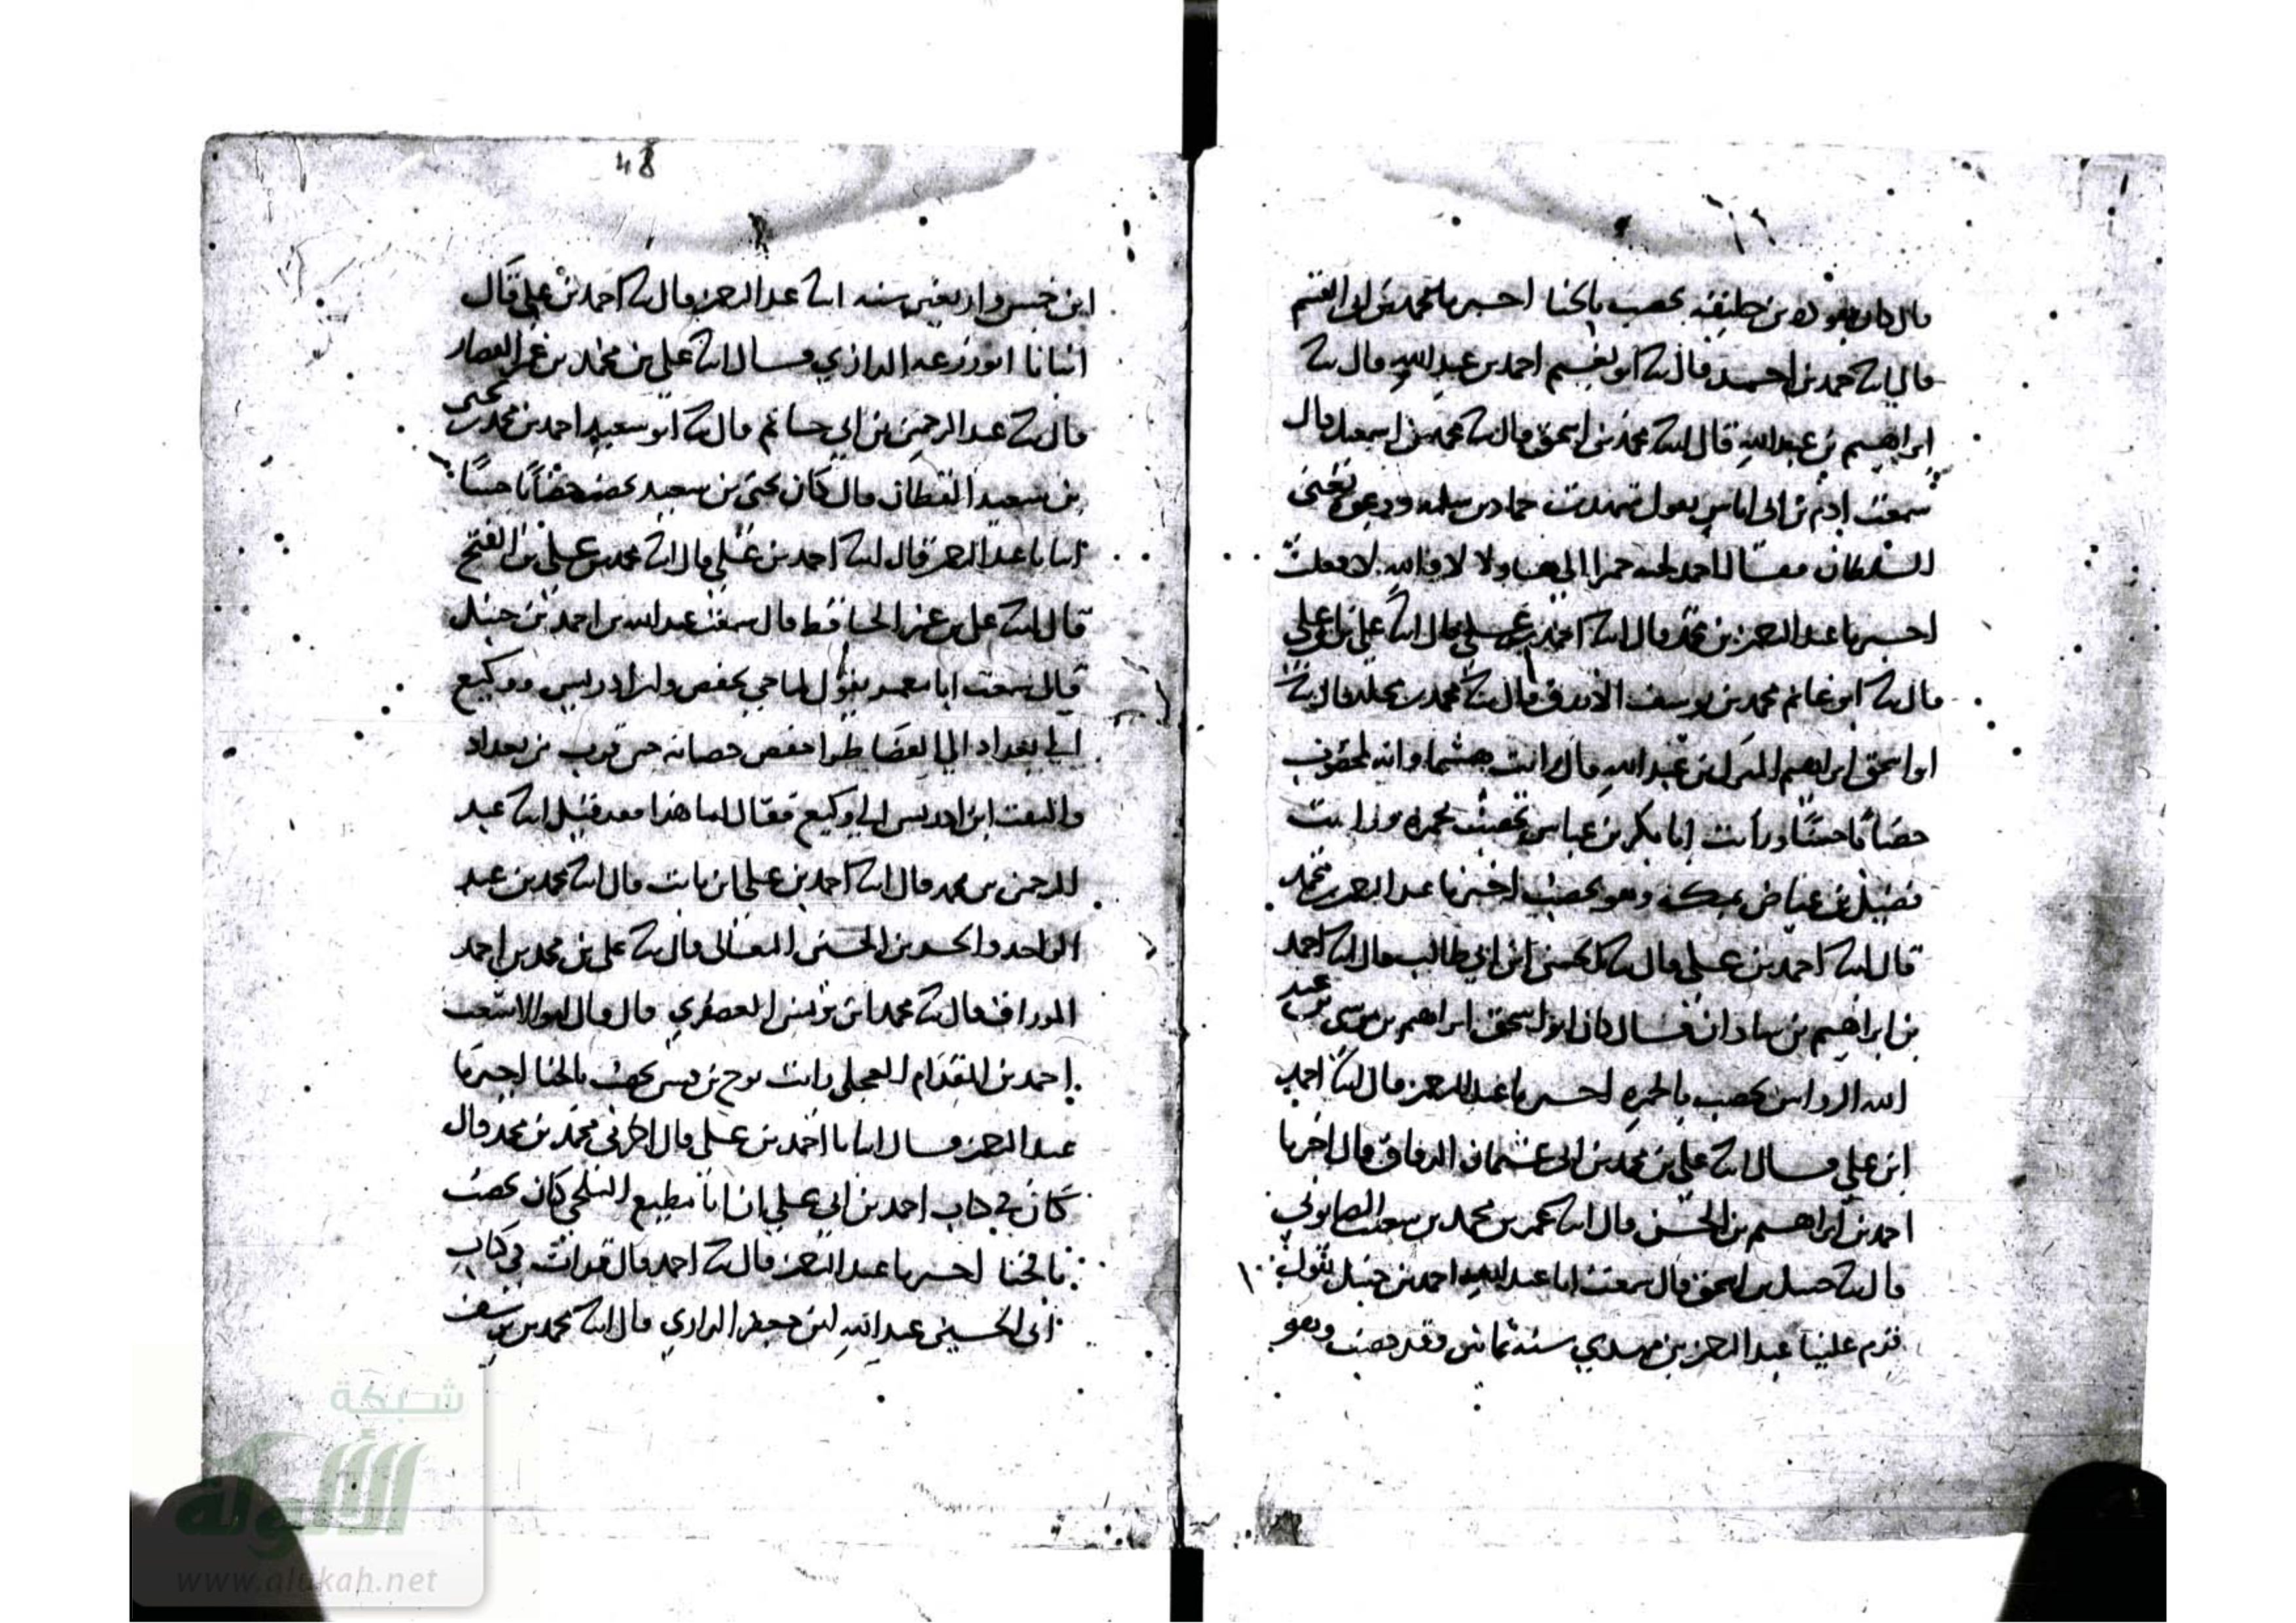 قال كان هوذة بن خليفة يخضب بالحنا اخبرنا محمد بن ابي القسم
قال انا حمد بن احمد قال ثنا ابو نعيم احمد بن عبد الله قال ثنا
ابراهيم بن عبد الله قال ثنا محمد بن اسحق قال ثنا محمد بن اسمعيل قال
سمعت ادم بن ابي اياس يقول شهدت حماد بن سلمة ودعوه يعني
السلطان فقال احمل لحية حمرا الى هاولا لا والله لا فعلت
اخبرنا عبد الرحمن بن محمد قال انا احمد بن علي قال انا علي بن ابي علي
قال ثنا ابو غانم محمد بن يوسف الازرق قال ثنا محمد بن مخلد قال ثنا
ابو اسحق ابراهيم بن عبد الله قال رايت هشيما وانه لمخضوب
خضابا حسنا ورايت ابا بكر بن عياش يخضب بحمرة ورايت
فضيل بن عياض بمكة وهو يخضب اخبرنا عبد الرحمن بن محمد
قال انا احمد بن علي قال ثنا الحسن ابن ابي طالب قال انا احمد
بن ابراهيم بن شاذان قال كان ابو اسحق ابراهيم بن موسى بن عبد
الله الرواس يخضب بالحمرة اخبرنا عبد الرحمن قال انا احمد
ابن علي قال انا علي بن محمد بن ابي عثمان الدقاق قال اخبرنا
احمد بن ابراهيم بن الحسن قال انا عمر بن محمد بن شعيب الصابوني
قال ثنا حنبل بن اسحق قال سمعت ابا عبد الله احمد بن حنبل يقول
قدم علينا عبد الرحمن بن مهدي سنة ثمانين وقد خضب وهو
48
ابن خمس واربعين سنة انا عبد الرحمن قال ثنا احمد بن علي قال
انبانا ابو زرعة الرازي قال انا علي بن محمد بن عمر القصار
قال ثنا عبد الرحمن بن ابي حاتم قال ثنا ابو سعيد احمد بن محمد بن يحيى
بن سعيد القطان قال كان يحيى بن سعيد يخضب خضابا حسنا
انبانا عبد الرحمن قال انا احمد بن علي قال انا محمد بن علي بن الفتح
قال انا علي بن عمر الحافظ قال سمعت عبد الله بن احمد بن حنبل
قال سمعت ابا معمر يقول لما جي بحفص وابن ادريس ووكيع
الى بغداد الى القضا طرا حفص خضابه حين قرب من بغداد
والتفت ابن ادريس الى وكيع فقال اما هذا فقد قبل انا عبد
الرحمن بن محمد قال انا احمد بن علي ابن ثابت قال انا محمد بن عبد
الواحد والحسن بن الحسين النعالي قال ثنا علي بن محمد بن احمد
الوراق قال ثنا محمد ابن يونس العصفري قال قال ابو الاشعث
احمد بن المقدام العجلي رايت نوح بن قيس يخضب بالحنا اخبرنا
عبد الرحمن قال انبانا احمد بن علي قال اخبرني محمد بن محمد قال
كان في كتاب احمد بن ابي علي ان ابا مطيع البلخي كان يخضب
بالحنا اخبرنا عبد الرحمن قال ثنا احمد قال قرات في كتاب
ابي الحسين عبيد الله ابن جعفر الرازي قال انا محمد بن يوسف
شبكة
الألوكة
www.alukah.net